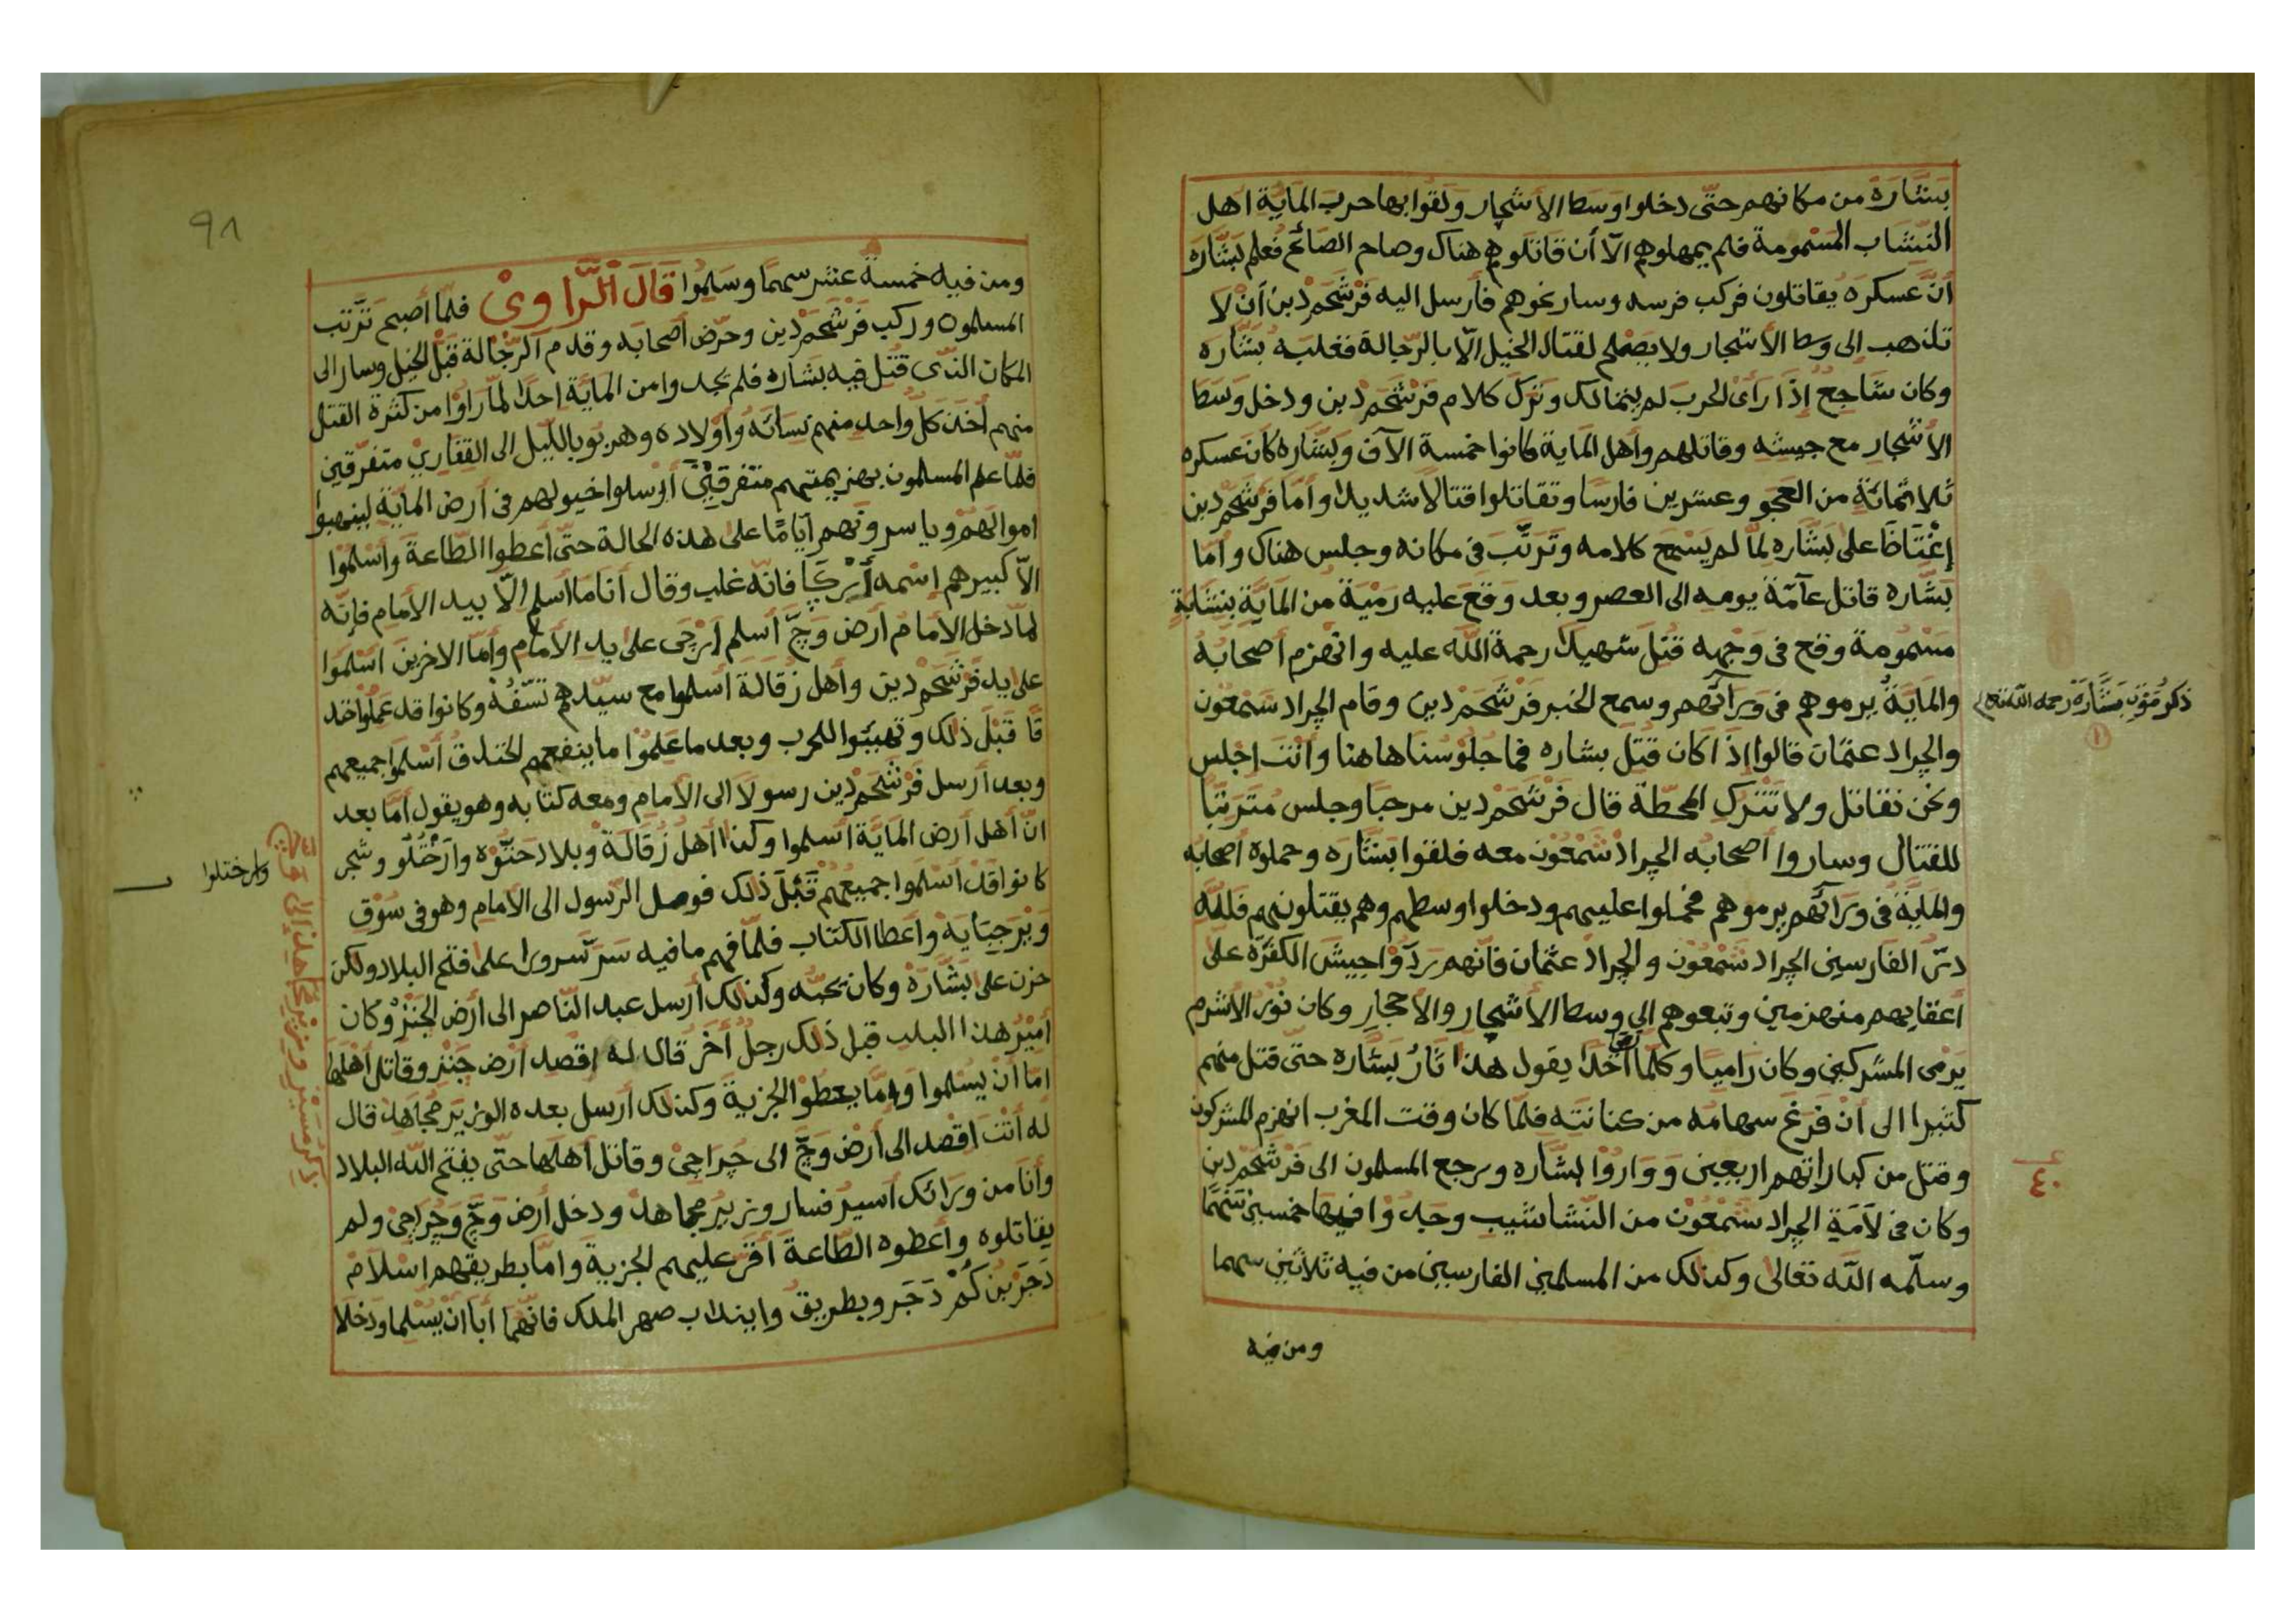 بَشَّارَهْ من مكانهم حتّى دخلوا وسط الأشجار ولقوا بها حرب المَايَة اهل
النشّاب المسْمومة فلم يمهلوهم الّا أن قاتلوهم هناك وصاح الصّائح فعلم بَشَّارَه
أنّ عسكره يقاتلون فركب فرسه وسار نحوهم فأرسل اليه فَرْشَحَمْ دين أنْ لا
تذهب الى وسط الأشجار ولا يصْلح لقتال الخيل الّا بالرّجالة فغلبه بشّاره
وكان شاجحٌ إذَا رأى الحربَ لم يتمالك وتركَ كلام فَرْشَحَمْ دين ودخل وسَط
الأشجار مع جيشه وقاتلهم وأهل الماية كانوا خمسة الآف وبَشَّاره كان عسكره
ثلاثمائة من العجو وعشرين فارسًا وتقاتلوا قتالًا شديدا وأمّا فَرْشَحَمْ دين
إغْتَاظَا على بَشَّاره لمّا لم يسْمح كلامه وتَرتّبَ فى مكانه وجلس هناك وأما
بَشَّاره قاتل عآمّة يومه الى العصر وبعد وقعَ عليه رمْية من المَايَة بنشّابةٍ
مسْمومة وقع فى وَجْهه قتل شهيدًا رحمة الله عليه وانهزم أصحابُه
والمَايَةُ يرموهم فى وَرَائهم وسمع الخبر فَرْشَحَمْ دين وقام الجراد شَمْعُون
ذكر مَوْتِ بَشَّارَهْ رحمه الله تعالى
والجراد عثمان قالوا اذَا كان قُتِل بشاره فما جُلوْسنا هاهنا وأنْتَ اجْلس
ونحن نقاتل ولا تتْرك المحطّة قال فَرْشَحَمْ دين مرحبا وجلس مُتَرتبًا
للقتال وساروا أصحابه الجراد شَمْعُون معه فلقوا بشّاره وحملوهْ أصحابه
والمايَّةُ فى وَرَائهم يرموهم فحملوا عليهم ودخلوا وسطهم وهم يقتلونهم فللّه
درّ الفارسين الجراد شَمْعُون والجراد عثمان فانّهم رَدّوْا جيش الكفَرَة على
أعقابهم منهزمين وتبعوهم الى وسط الأشجار والأحجار وكان نُوْر الأشرم
يَرْمى المشركين وكان راميًا وكلّما أخذا يقول هذا ثَارُ بَشَّاره حتّى قتل منهم
كثيرا الى أنْ فَرَغَ سهامه من كنانته فلمّا كان وقت المغرب انهزم المشركون
وقتل من كباراتهم اربعين وَوَارَوْا بشّاره ورجع المسلمون الى فَرْشَحَمْ دين
٤٠
وكان فى لَامَةِ الجراد شَمْعُون من النّشاشيب وجدُوْا فيها خمسين سَهْمًا
وسلّمه الله تعالى وكذلك من المسلمين الفارسين من فيه ثلاثين سهما
ومن فيه
٩٨
ومن فيه خمسة عشر سهمًا وسَلِمُوا قَالَ الرَّاوىْ فلمّا أصبح تَرّتب
المسلمون وركب فَرْشَحَمْ دين وحرّض أصحابه وقدم الرّجّالة قبْل الخيل وسار الى
المكان الذّى قتُل فيه بشاره فلم يجدوا من المايَّة احدًا لمّا رَاوْا من كثرة القتل
منهم أخذ كلّ واحد منهم نسائه وأوْلاده وهربو بالليل الى القفارىْ متفرّقين
فلمّا علم المسلمون بهزيمتهم متفرقيْن أرْسلوا خيولهم فى أرض المايَّة لينهبوا
اموالهُمْ وياسرونهم أيّامًا على هذه الحالة حتّى أعطوا الطّاعة واسْلموْا
الّا كبيرهم إسْمه أرْكَا فانّه غلب وقال أنا ما أسلم الّا بيد الأمام فإنّه
لمّا دخل الأمام أرض وَجّ أسلم أرْجَى على يد الأمام وأمّا الاخرين اسْلموا
على يد فَرْشَحَمْ دين وأهل زُقَالة أسلموا مع سيّدهم تَسّفُهْ وكانوا قد عَملوا خند
قًا قَبْلَ ذلك وتهيّئوا للحرب وبعد ما عَلمُوْا ما ينفعهم الخندقُ أسْلموا جميعهم
وبعد أرسل فَرْشَحَمْ دين رسولًا الى الأمام ومعه كتابه وهو يقول أمّا بعد
انّ أهل أرض المايَّة أسلموا وكذا أهل زُقَالَةْ وبلاد حَنتّوْه وارَخْتَلُو وشجر
وارختلوا
كانوا قدْ أسْلموا جميعهم قَبْلَ ذلك فوصل الرّسول الى الأمام وهو فى سُوْق
وَيْرَجبَايَهْ وأعطا الكتاب فلمّا فهم ما فيه سَرّ سرورا على فتح البلاد ولكن
حزن على بَشَّارَهْ وكان يحبّه وكذلك أرسل عبد النّاصر الى أرض الجَنْزْ وكان
أميْرُ هذا البلد قبل ذلك رجلُ أخر قال له اقصد ارض جَنْز وقاتل أهْلَها
امّا انْ يسْلموا وامّا يعطوْا الجزية وكذلك أرسل بعده الوزير مجاهد قال
له أنْتَ اقصد الى أرْض وَجّ الى جُراجِىْ وقاتل أهلها حتّى يفتح الله البلاد
وأنا من وَرَائك أسيرُ فسار وزير مجاهد ودخل أرض وَجّ وجُرَاجىْ ولم
يقاتلوه وأعطوه الطّاعة أقرّ عليهم الجزية وامّا بطريقهم اسْلَامْ
دَجَرْ بن كُمْ دَجَر وبطريق وابنداب صهر الملك فانّهما أبَا انْ يُسْلما ودخلا
ذِكْر مَسِيْر وَزِيْر مُجَاهِدْ إلى